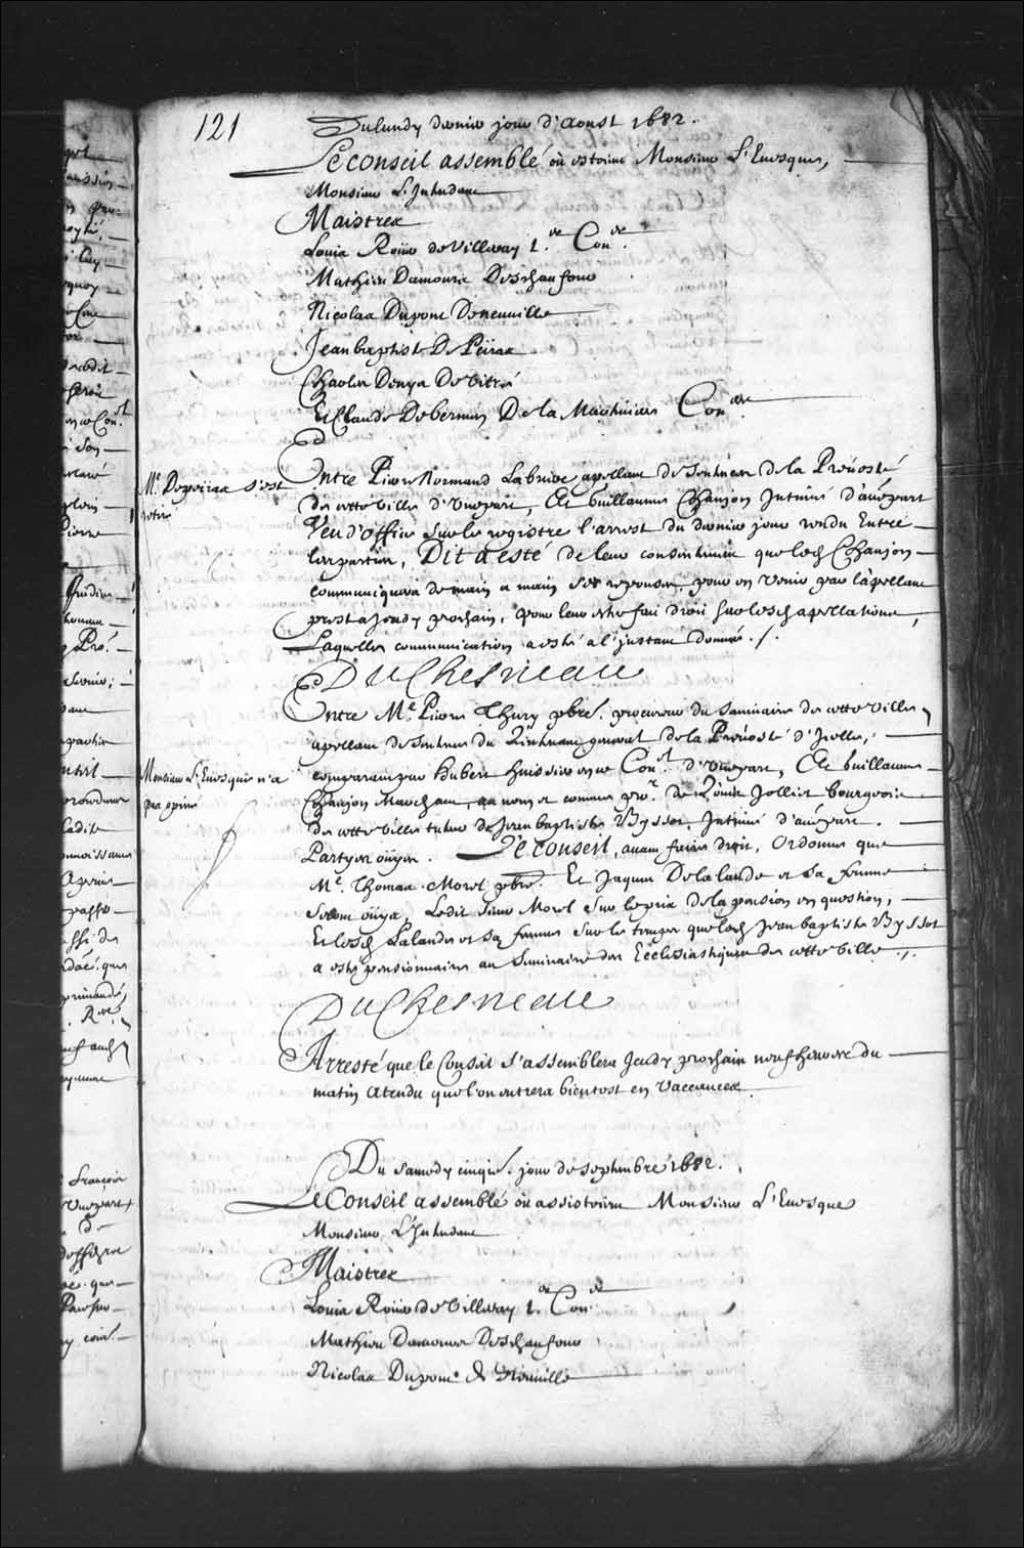 121
Du lundy dernier jour d'Aoust 1682.
Le conseil assemblé où estoient Monsieur L'Euesque,
Monsieur L'Intendant
Maistres
Louis Roüer de Villeray 1.er Con.er
Mathieu Damours Deschaufour
Nicolas Dupont Deneuuille
Jean baptiste De Peiras
Charles Denys De Vitré
Et Claude De bermen De la Martiniere Con.ers
Mr. Depeiras s'est
retiré
Entre Pierre Normand Labriere apellant de sentence de la Preuosté
de cette ville d'Vne part, Et Guillaume Chanjon Intimé d'autre part
Veu d'office sur le registre l'arrest du dernier jour rendu Entre
les parties, Dit a esté de leur consentement que led. Chanjon
communiquera de main a main ses reponses, pour en venir par l'apellant
prest a Jeudy prochain, pour leur estre fait droit sur lesd. apellations,
Laquelle communication a esté a l'instant donnée ./.
DuChesneau
Entre Me. Pierre Thury pbre. procureur du Seminaire de cette ville
apellant de sentence du Lieutenant general de la Preuosté d'Icelle,
comparant par Hubert huissier en ce Con.l d'Vne part, Et Guillaume
Monsieur L'Euesque n'a
pas opiné
Chanjon Marchant, au nom et comme pro.r de Loüis Jolliet bourgeois
de cette ville tuteur de Jean baptiste Byssot, Intimé d'autre part.
Partyes oüyes. Le conseil, auant faire droit, Ordonne que
Me. Thomas Morel pbre. Et Jaques De la lande et sa femme
seront oüys, Ledit sieur Morel sur le prix de la pension en question,
Et lesd. Lalande et sa femme sur le temps que led. Jean baptiste Byssot
a esté pensionnaire au Seminaire des Ecclesiastiques de cette ville ./.
DuChesneau
Arresté que le Conseil s'assemblera Jeudy prochain neuf heures du
matin atendu que l'on entrera bientost en Vaccances
Du samedy cinqie. jour de septembre 1682.
Le Conseil assemblé où assistoient Monsieur L'Euesque
Monsieur L'Intendant
Maistres
Louis Roüer de Villeray 1.er Con.er
Mathieu Damours Deschaufour
Nicolas Dupont de Neuuille